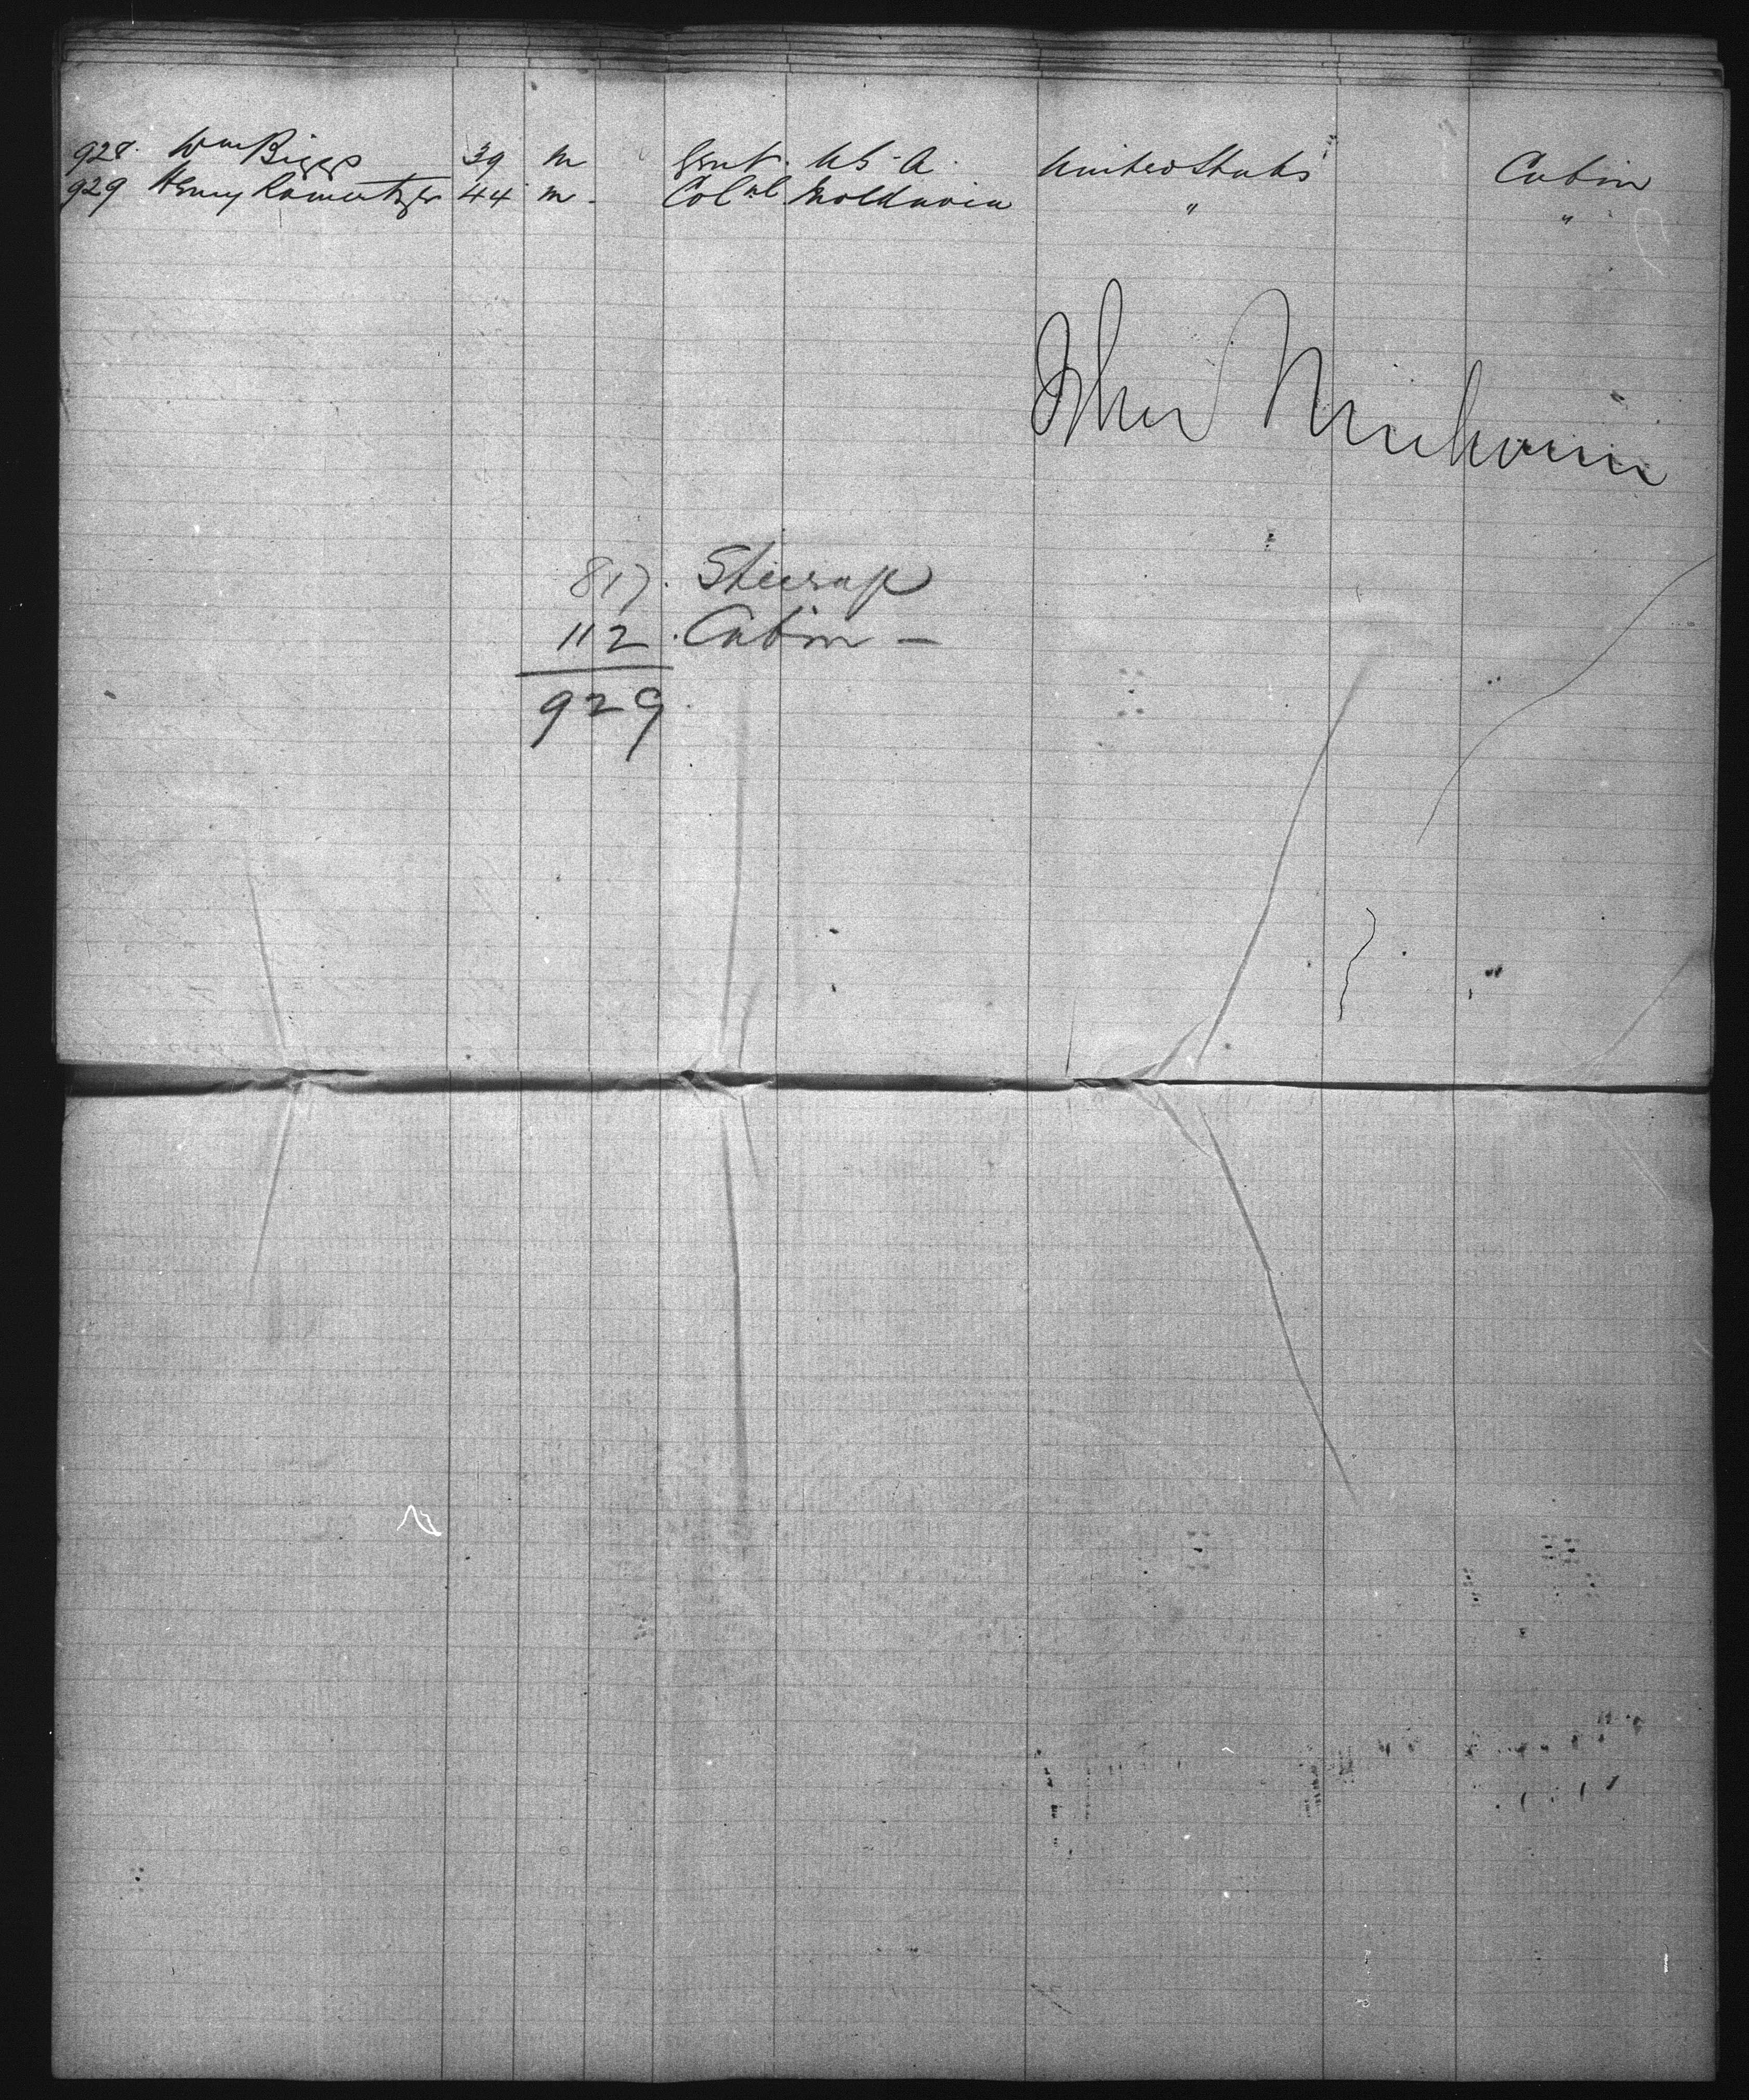 928. Wm Biggs 39 m Gent. US A. United States Cabin
929 Henry 44 m. Colnl Moldavia " "
John
817. Steerage
112. Cabin —
929.